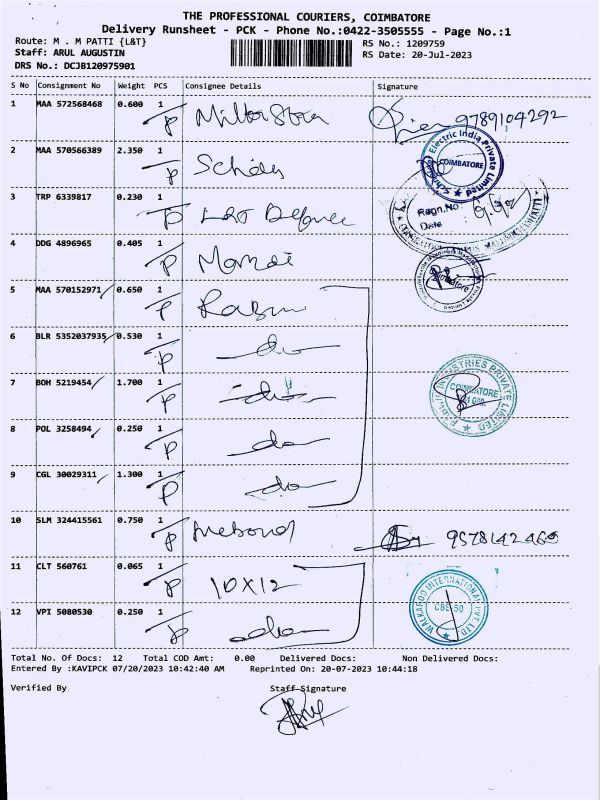 THE PROFESSIONAL COURIERS, COIMBATORE
Delivery Runsheet - PCK - Phone No.:0422-3505555 - Page No.:1
Route: M . M PATTI {L&T} RS No.: 1209759
Staff: ARUL AUGUSTIN RS Date: 20-Jul-2023
DRS No.: DCJB120975901
S No Consignment No Weight PCS Consignee Details Signature
1 MAA 572568468 0.600 1 P 9789104292
2 MAA 570566389 2.350 1 P
Electric India Private Limited COIMBATORE
3 TRP 6339817 0.230 1 P L&T Defence
Regn.No
Date
4 DDG 4896965 0.405 1 P
5 MAA 570152971 0.650 1 P
6 BLR 5352037935 0.530 1 P do
7 BOH 5219454 1.700 1 P do
INDUSTRIES PRIVATE LIMITED COIMBATORE
8 POL 3258494 0.250 1 P do
9 CGL 30029311 1.300 1 P do
10 SLM 324415561 0.750 1 P
11 CLT 560761 0.065 1 P 10X12
WALKAROO INTERNATIONAL PVT LTD
12 VPI 5080530 0.250 1 P do
Total No. Of Docs: 12 Total COD Amt: 0.00 Delivered Docs: Non Delivered Docs:
Entered By :KAVIPCK 07/20/2023 10:42:40 AM Reprinted On: 20-07-2023 10:44:18
Verified By Staff Signature